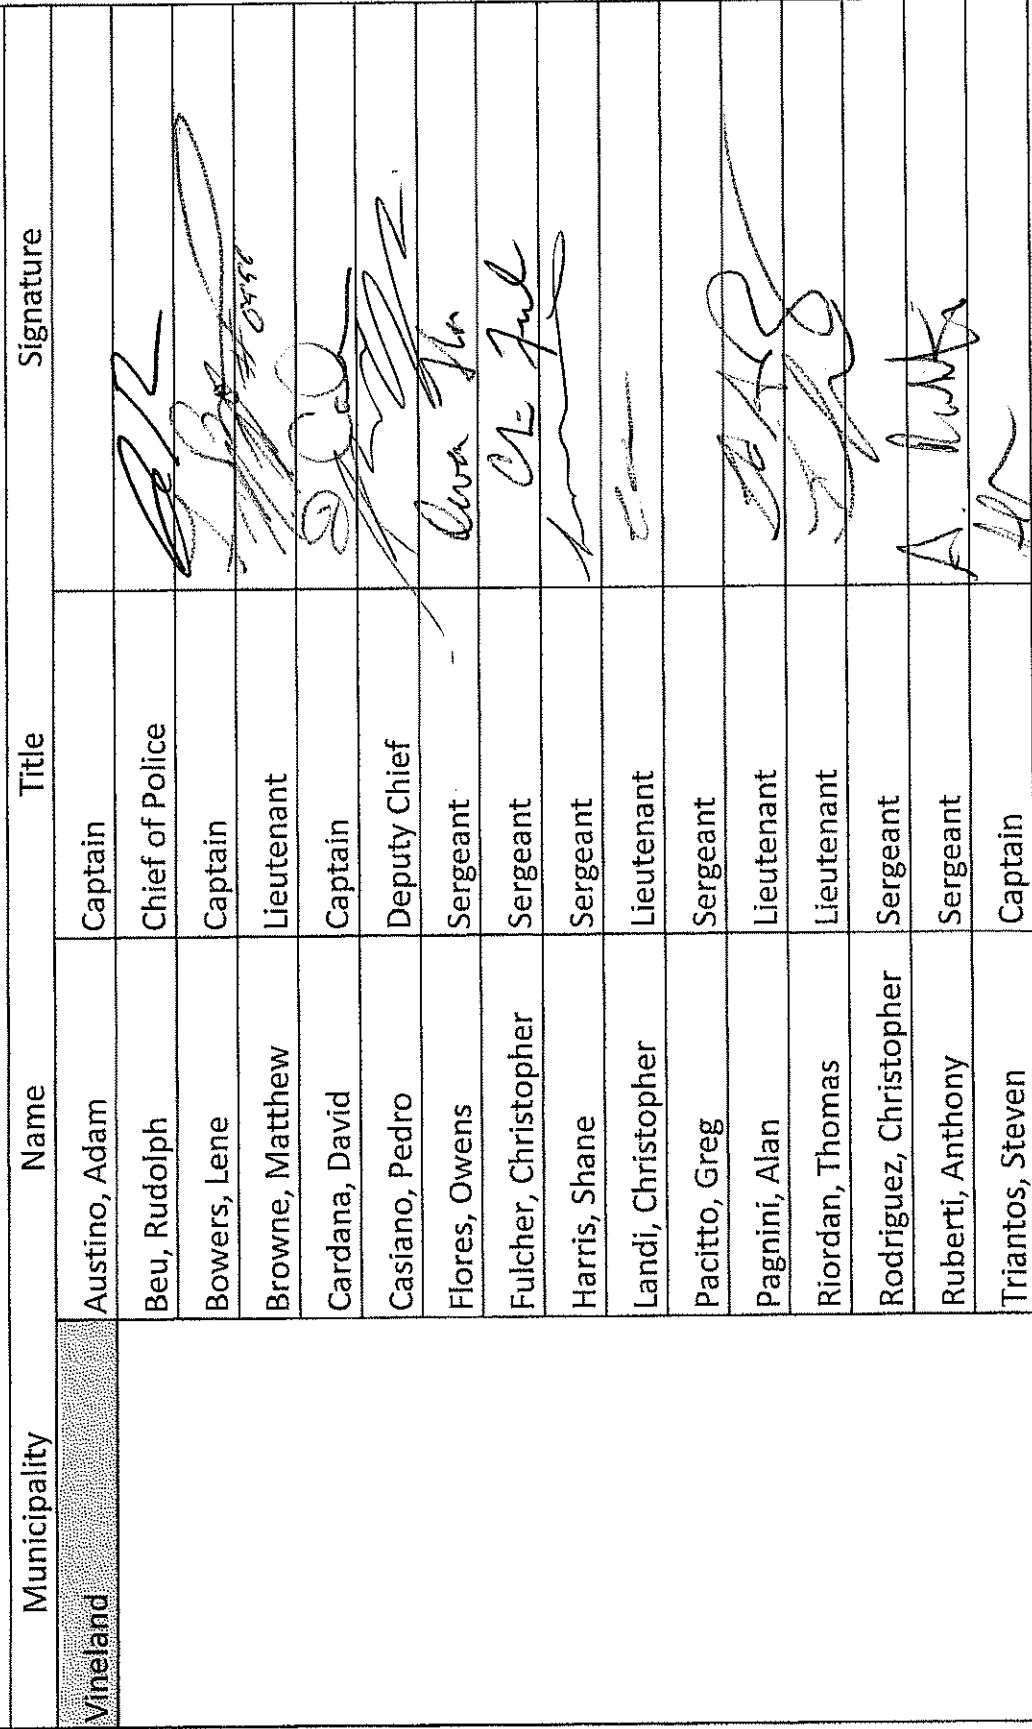 Municipality Name Title Signature
Vineland Austino, Adam Captain
Beu, Rudolph Chief of Police
Bowers, Lene Captain
Browne, Matthew Lieutenant
Cardana, David Captain
Casiano, Pedro Deputy Chief
Flores, Owens Sergeant
Fulcher, Christopher Sergeant
Harris, Shane Sergeant
Landi, Christopher Lieutenant
Pacitto, Greg Sergeant
Pagnini, Alan Lieutenant
Riordan, Thomas Lieutenant
Rodriguez, Christopher Sergeant
Ruberti, Anthony Sergeant
Triantos, Steven Captain